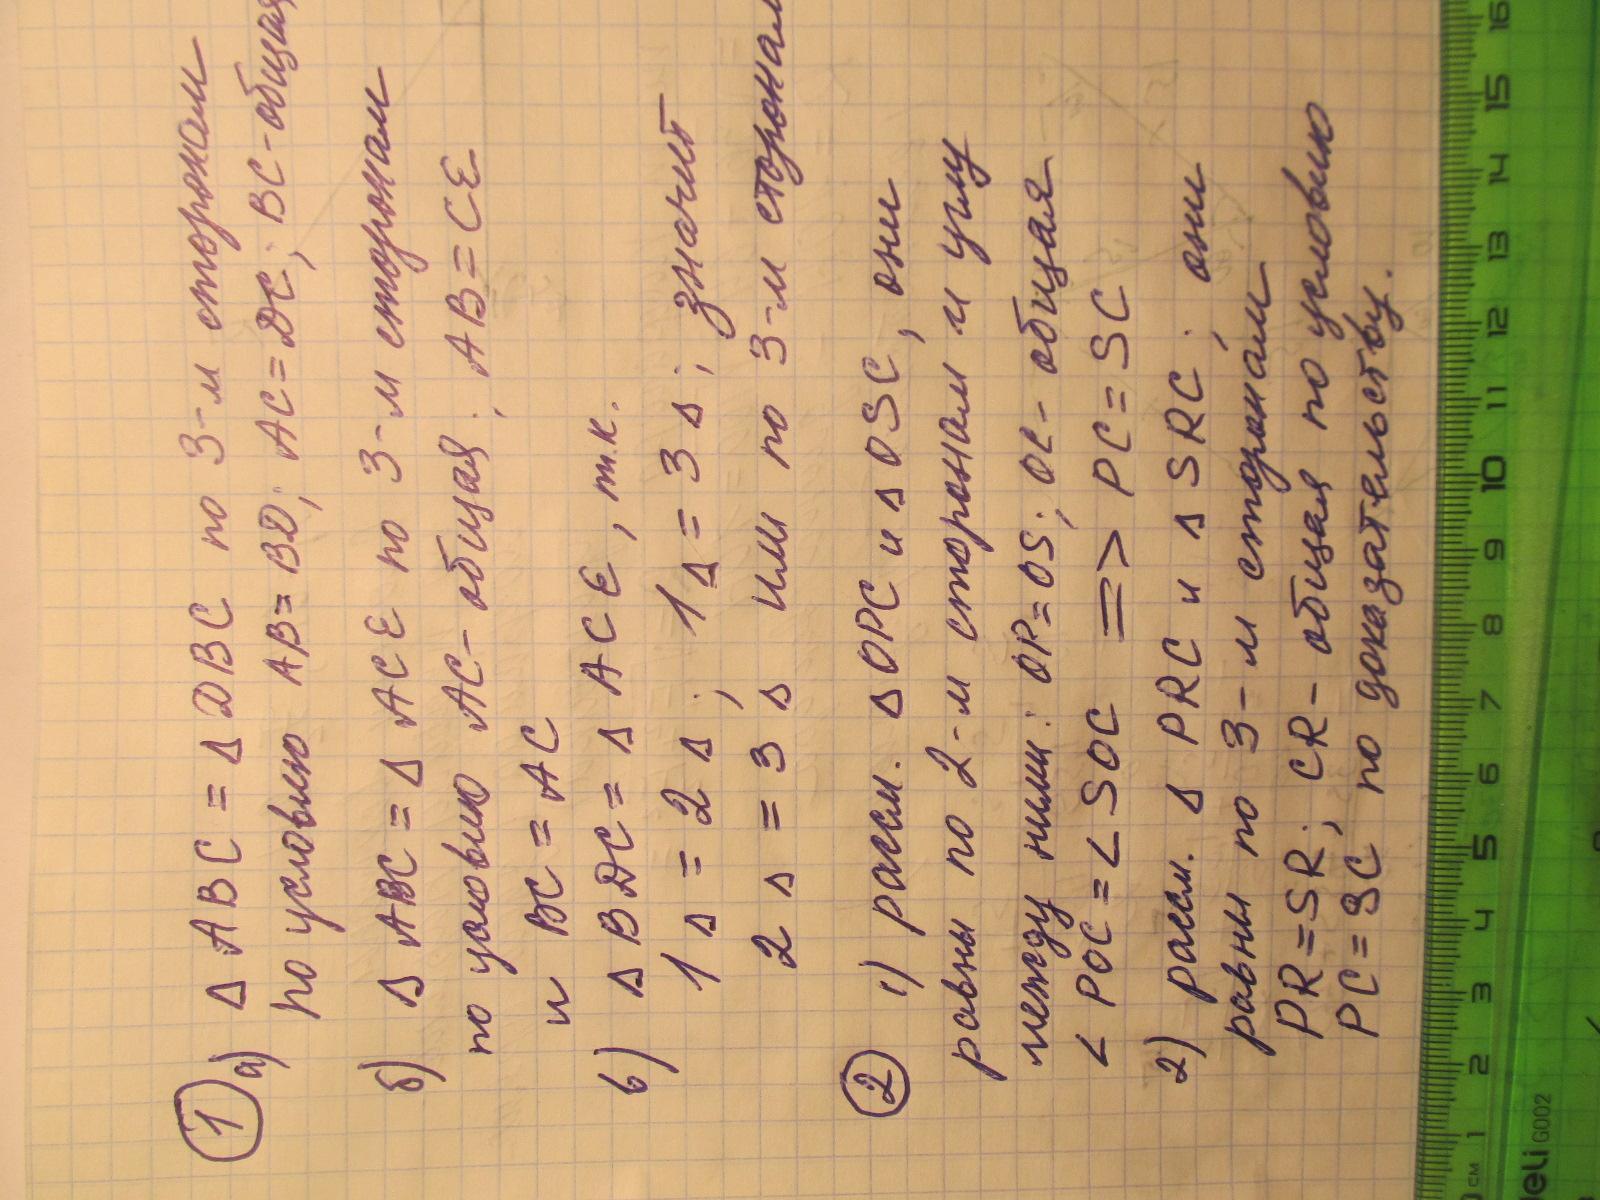 1
а) Δ ABC = Δ DBC по 3-м сторонам
по условию AB = BD; AC = DC; BC - общая
б) Δ ABC = Δ ACE по 3-м сторонам
по условию AC - общая; AB = CE
и BC = AC
в) Δ BDC = Δ ACE, т.к.
1 Δ = 2 Δ; 1 Δ = 3 Δ; значит
2 Δ = 3 Δ или по 3-м сторонам
2 1) рассм. Δ OPC и Δ OSC, они
равны по 2-м сторонам и углу
между ними: OP = OS; OC - общая
∠ POC = ∠ SOC => PC = SC
2) рассм. Δ PRC и Δ SRC; они
равны по 3-м сторонам
PR = SR; CR - общая по условию
PC = SC по доказательству.
0 CM 1 2 3 4 5 6 7 8 9 10 11 12 13 14 15 16
eli G002